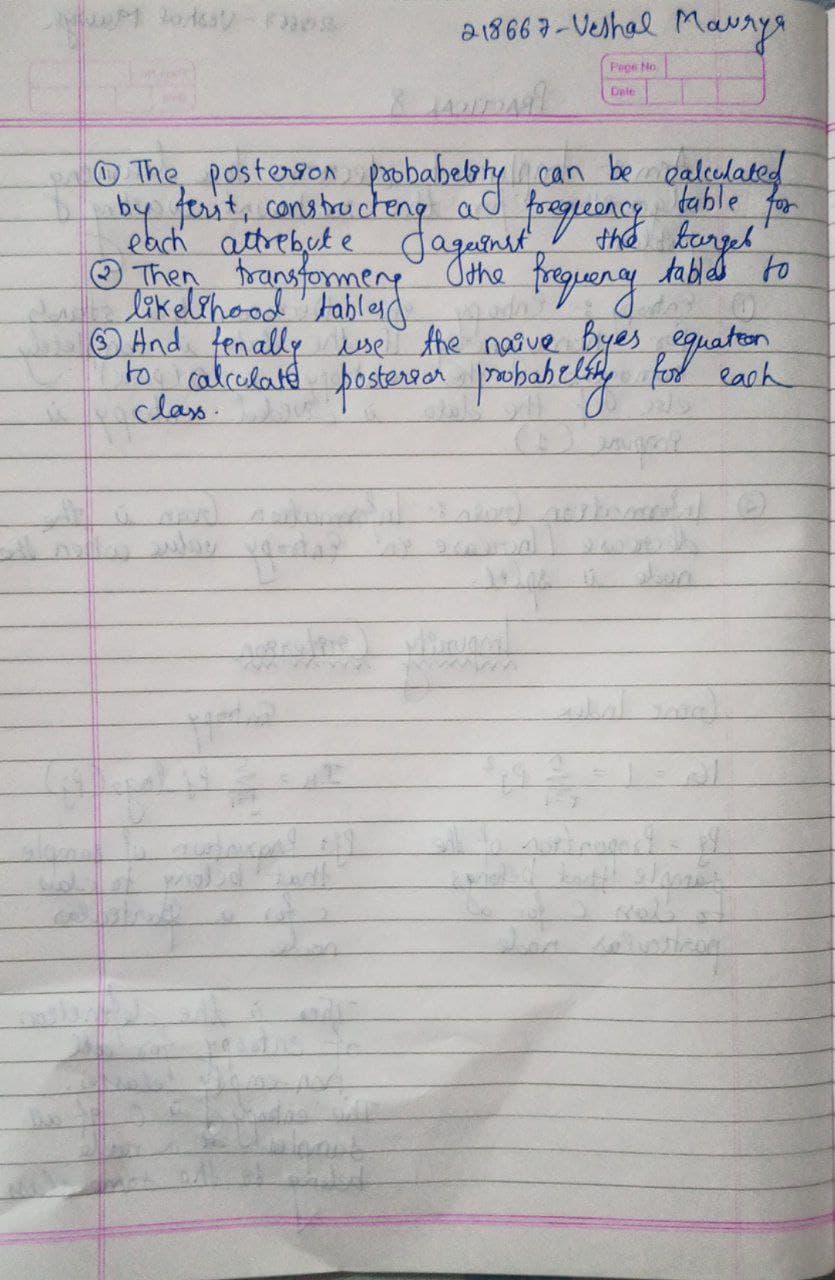 218667-Veshal Maurya
Page No.
Date
① The posterior probability can be calculated
by first, constructing a frequency table for
each attribute against the target
② Then transforming the frequency tables to
likelihood tables
③ And finally use the naive Byes equation
to calculate posterior probability for each
class.